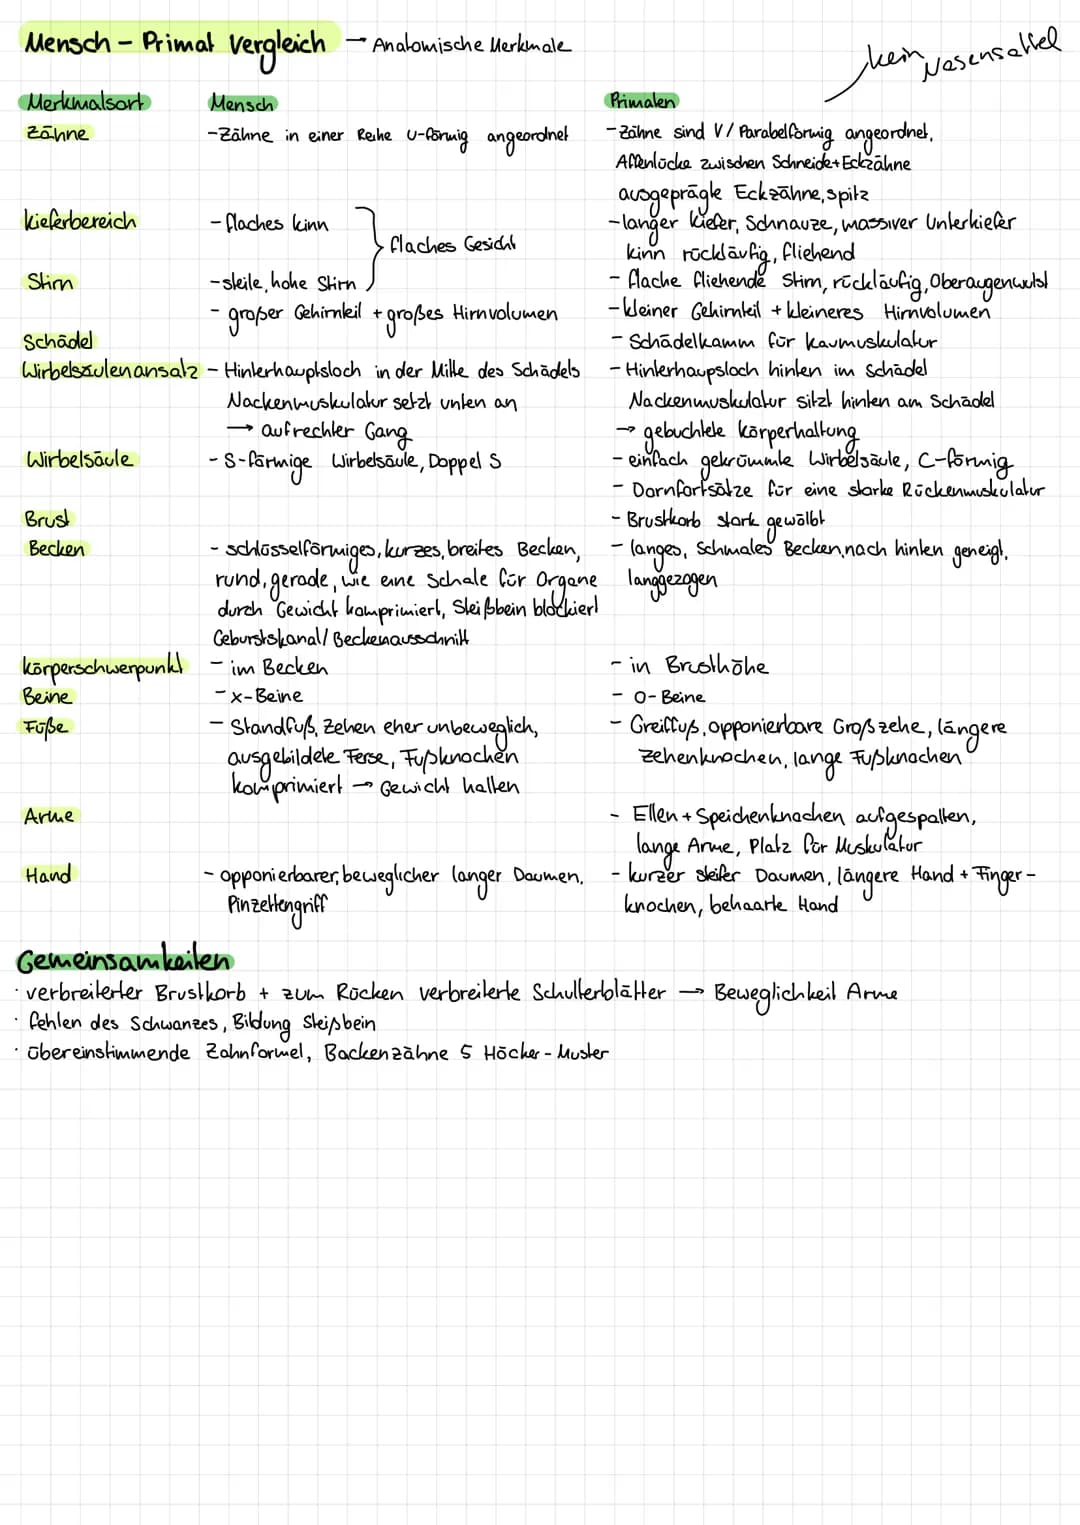 Mensch - Primat Vergleich → Anatomische Merkmale
kein Nasensattel
Merkmalsort Mensch Primaten
Zähne - Zähne in einer Reihe U-förmig angeordnet - Zähne sind V / Parabelförmig angeordnet,
Affenlücke zwischen Schneide + Eckzähne
ausgeprägte Eckzähne, spitz
Kieferbereich - flaches Kinn - langer Kiefer, Schnauze, massiver Unterkiefer
flaches Gesicht Kinn rückläufig, fliehend
Stirn - steile, hohe Stirn - flache fliehende Stirn, rückläufig, Oberaugenwulst
- großer Gehirnteil + großes Hirnvolumen - kleiner Gehirnteil + kleineres Hirnvolumen
Schädel - Schädelkamm für Kaumuskulatur
Wirbelsäulenansatz - Hinterhauptsloch in der Mitte des Schädels - Hinterhaupsloch hinten im Schädel
Nackenmuskulatur setzt unten an Nackenmuskulatur sitzt hinten am Schädel
→ aufrechter Gang → gebuchtete Körperhaltung
Wirbelsäule - S-förmige Wirbelsäule, Doppel S - einfach gekrümmte Wirbelsäule, C-förmig
- Dornfortsätze für eine starke Rückenmuskulatur
Brust - Brustkorb stark gewölbt
Becken - schlüsselförmiges, kurzes, breites Becken, - langes, schmales Becken, nach hinten geneigt,
rund, gerade, wie eine Schale für Organe langgezogen
durch Gewicht komprimiert, Steißbein blockiert
Geburtskanal / Beckenausschnitt
Körperschwerpunkt - im Becken - in Brusthöhe
Beine - X-Beine - O-Beine
Füße - Standfuß, Zehen eher unbeweglich, - Greiffuß, opponierbare Großzehe, längere
ausgebildete Ferse, Fußknochen Zehenknochen, lange Fußknochen
komprimiert → Gewicht halten
Arme - Ellen + Speichenknochen aufgespalten,
lange Arme, Platz für Muskulatur
Hand - opponierbarer, beweglicher langer Daumen, - kurzer steifer Daumen, längere Hand + Finger-
Pinzettengriff knochen, behaarte Hand
Gemeinsamkeiten
· verbreiterter Brustkorb + zum Rücken verbreiterte Schulterblätter → Beweglichkeit Arme
· fehlen des Schwanzes, Bildung Steißbein
· übereinstimmende Zahnformel, Backenzähne 5 Höcker - Muster